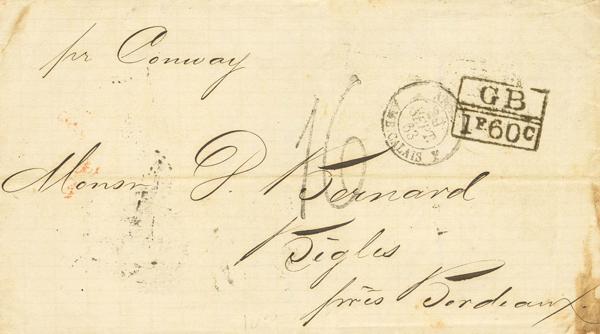 pr Conway
16
GB
1F60C
SEPT
63
CALAIS
Monsr P. Bernard
Bègles
près Bordeaux